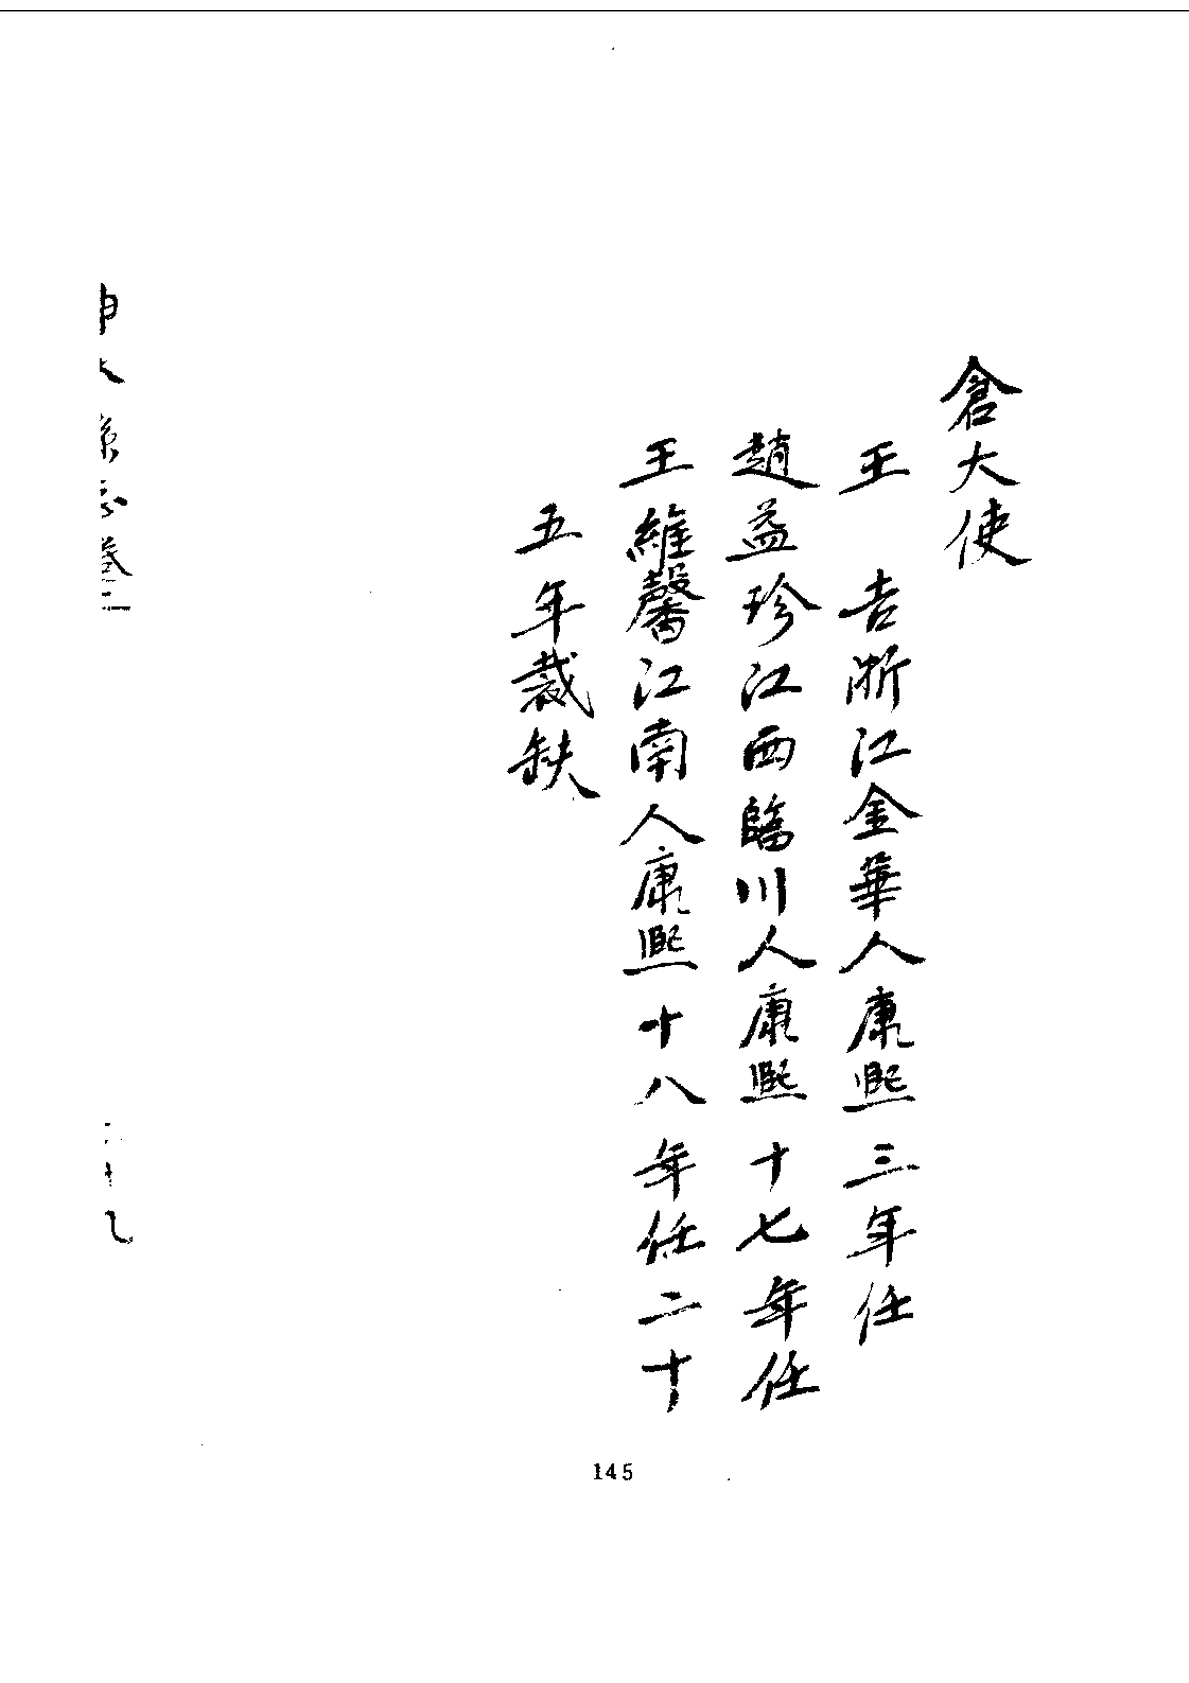 倉大使
王　吉浙江金華人康熙三年任
趙益珍江西臨川人康熙十七年任
王維馨江南人康熙十八年任二十
五年裁缺
145